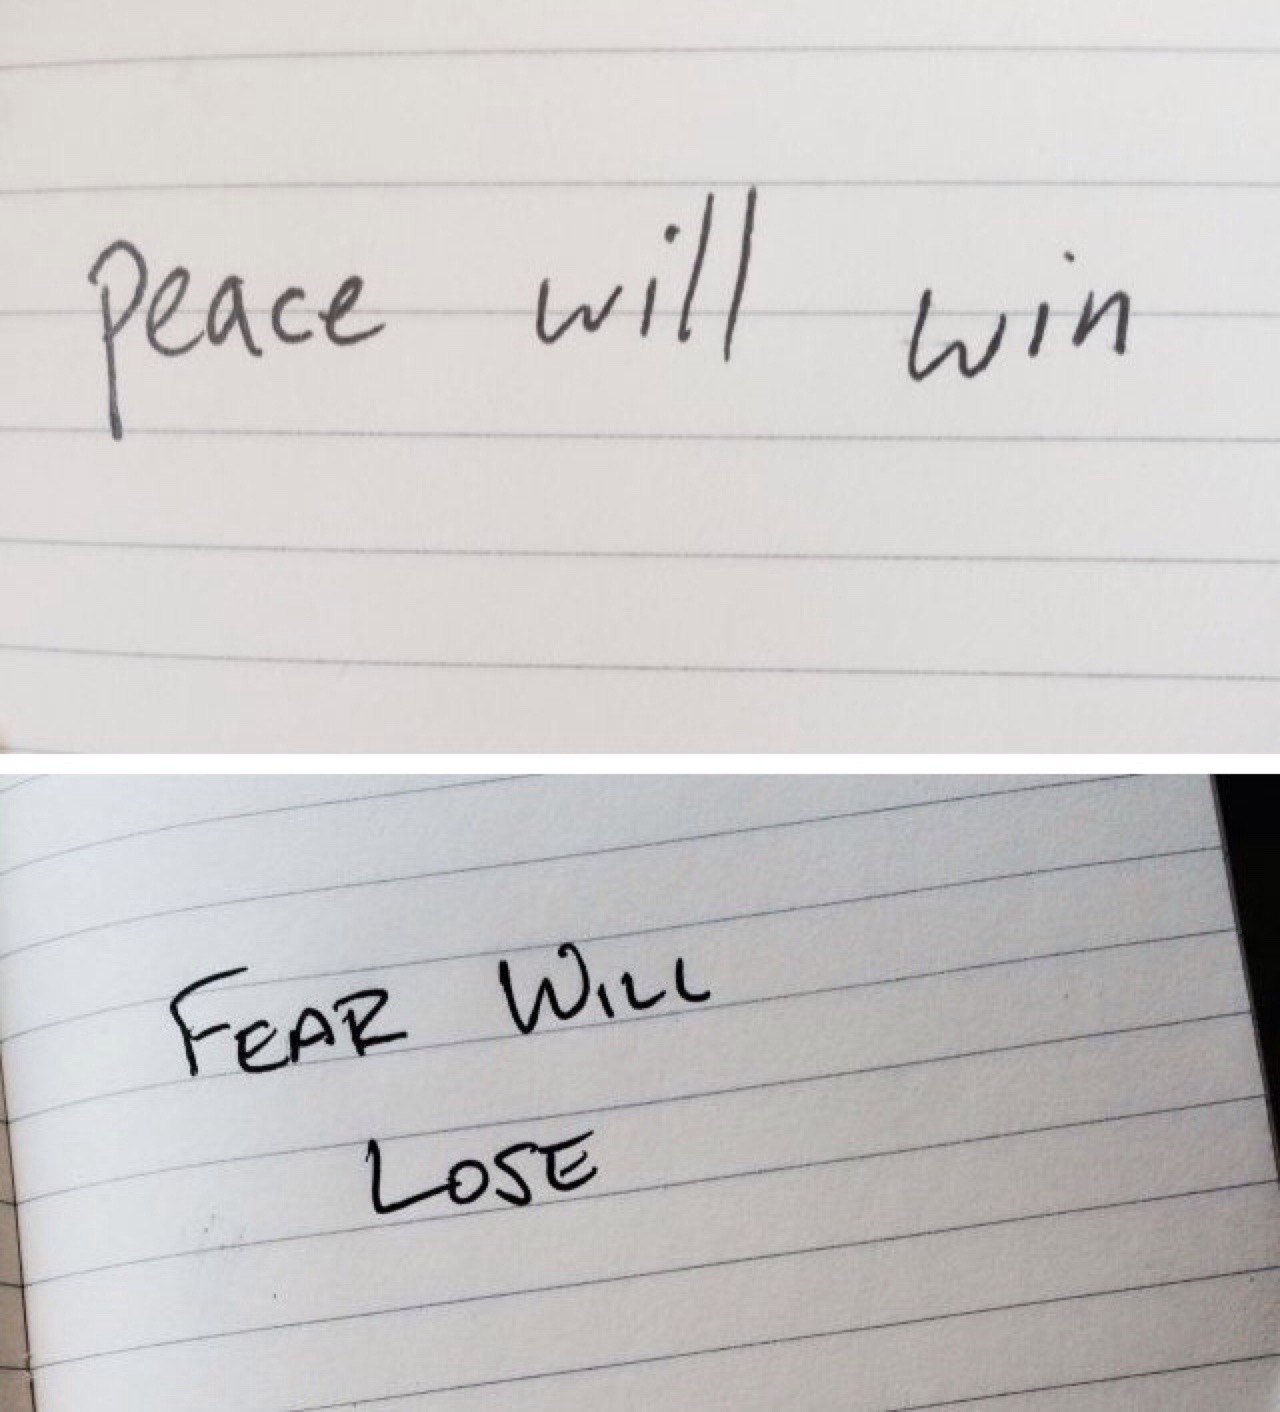 peace will win
FEAR WILL
LOSE